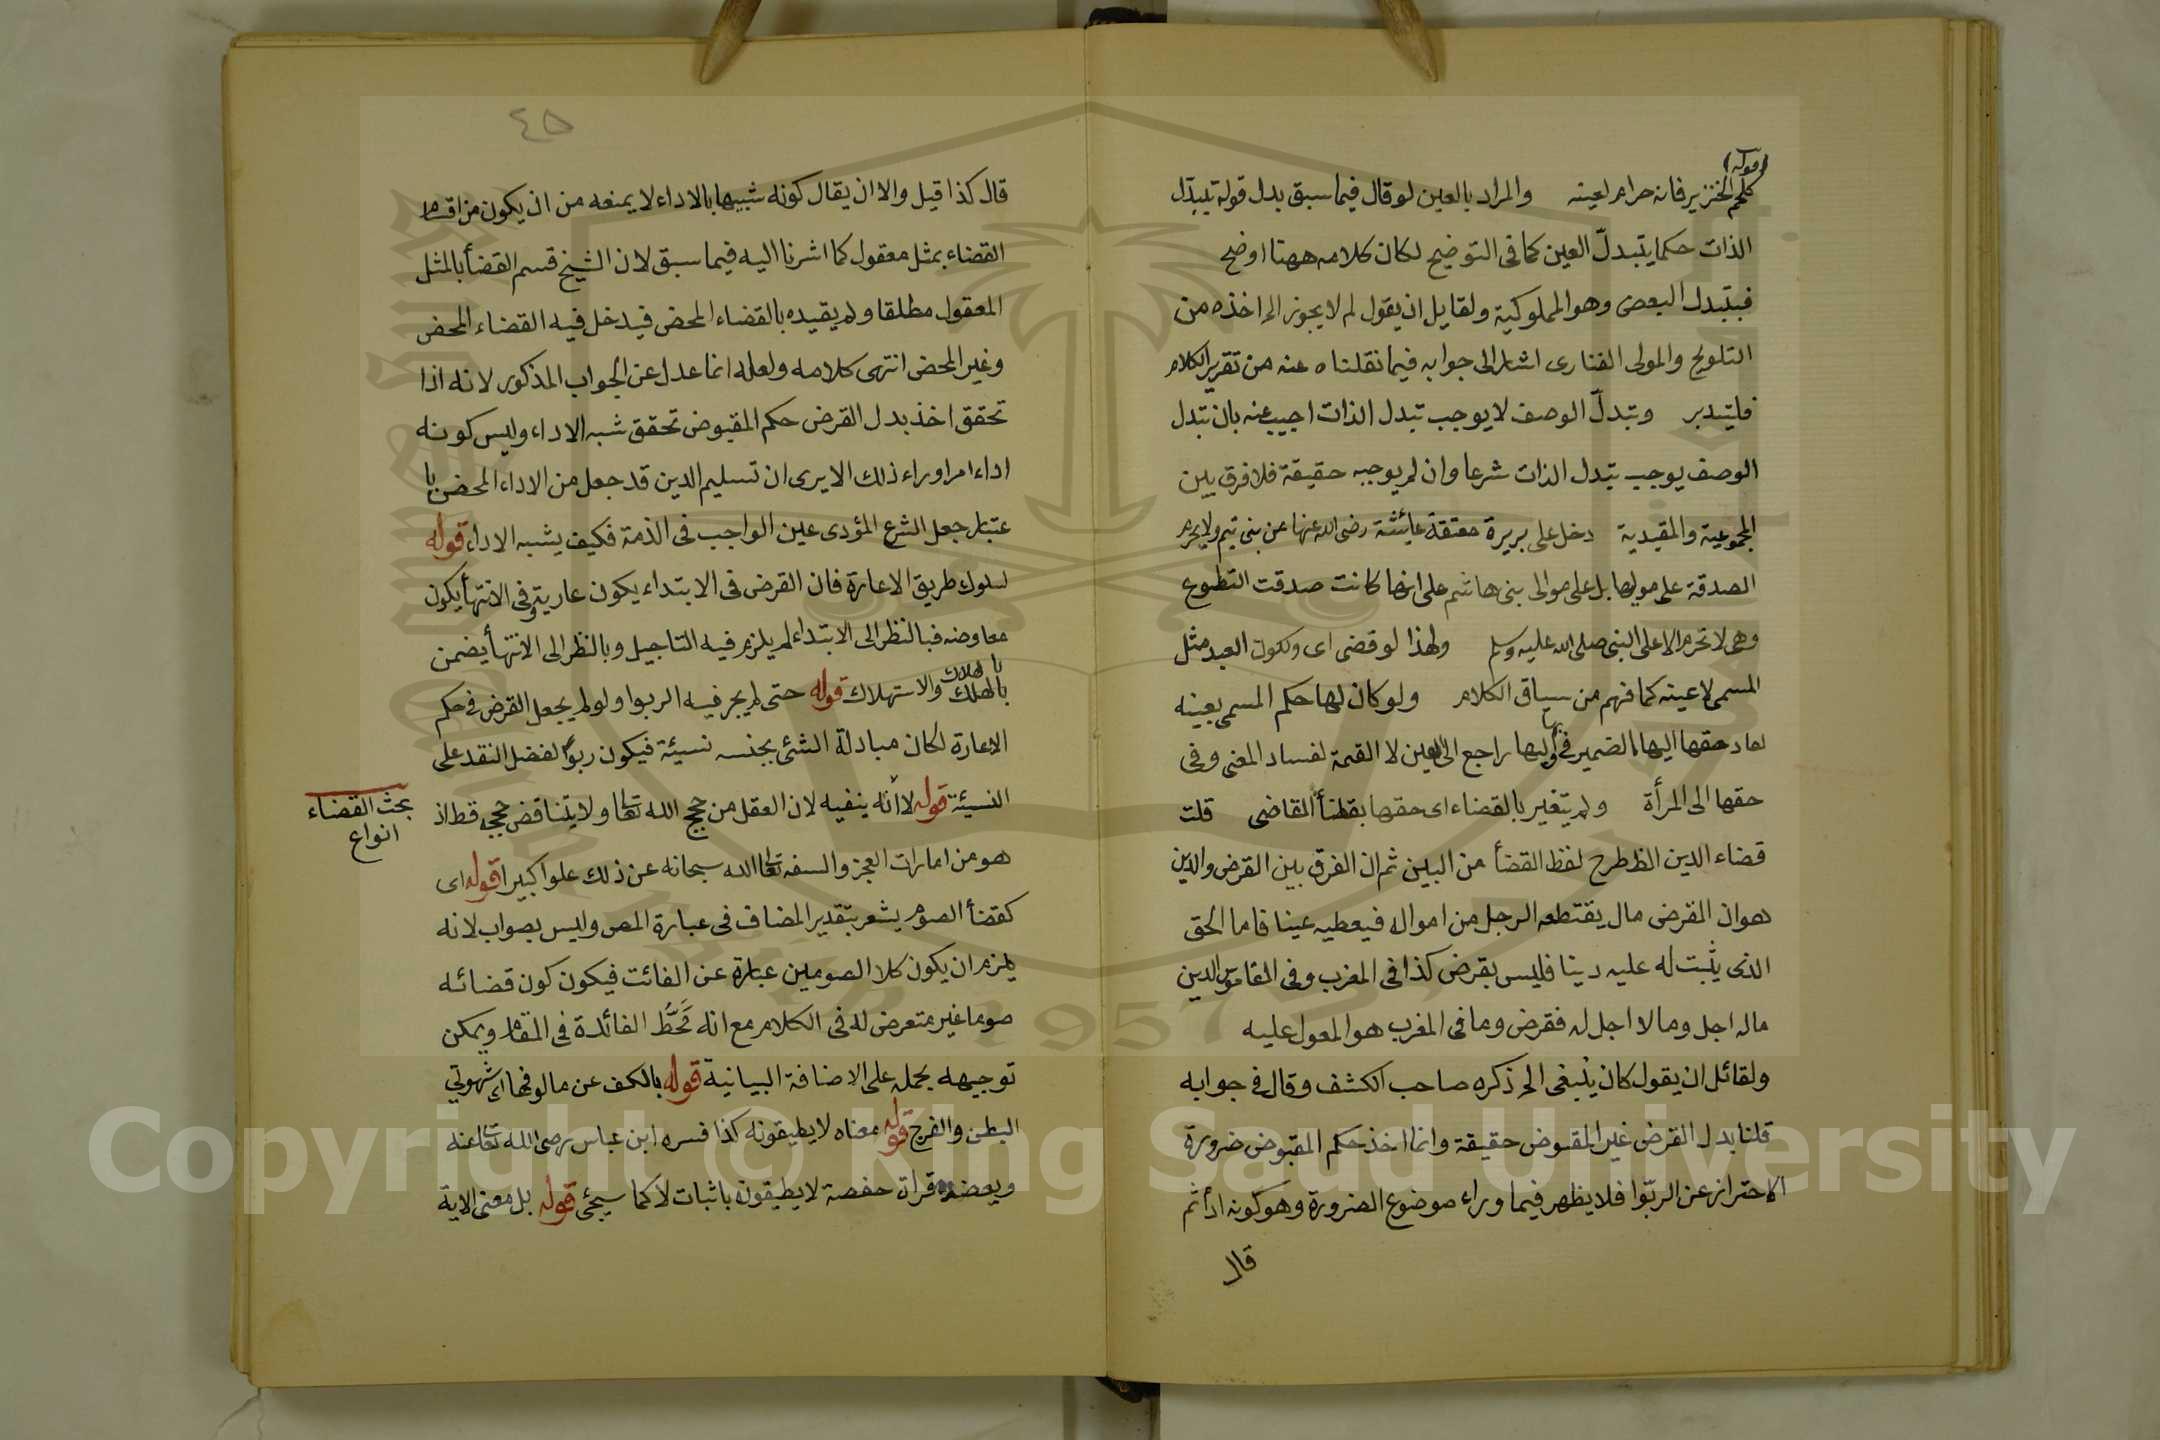 (قوله)
كلحم الخنزير فانه حرام لعينه والمراد بالعين لو قال فيما سبق بدل قوله تبدّل
الذات حكما يتبدلّ العين كما في التوضيح لكان كلامه ههنا اوضح
فبتبدل البعض وهو المملوكية ولقايل ان يقول لم لا يجوز الخ اخذه من
التلويح والمولى الفنارى اشار الى جوابه فيما نقلناه عنه من تقرير الكلام
فليتدبر وتبدلّ الوصف لا يوجب تبدل الذات اجيب عنه بان تبدل
الوصف يوجب تبدل الذات شرعا وان لم يوجبه حقيقة فلا فرق بين
المجموعية والمقيدية دخل على بريرة معتقة عايشة رضى الله عنها من بنى تيم ولا يحرم
الصدقة على موليها بل على موالى بنى هاشم على انها كانت صدقت التطوع
وهى لا تحرم الا على النبى صلى الله عليه وسلم ولهذا لو قضى اى ولكون العبد مثل
المسمى لا عينه كما فهم من سياق الكلام ولو كان لها حكم المسمى بعينه
لعاد حقها اليها الضمير فى اليها راجع الى العين لا القيمة لفساد المعنى وفى
حقها الى المرأة ولم يتغير بالقضاء اى حقها بقضأ القاضى قلت
قضاء الدين الظ طرح لفظ القضأ من البين ثم ان الفرق بين القرض والدين
هو ان القرض مال يقتطعه الرجل من امواله فيعطيه عينا فاما الحق
الذى يثبت له عليه دينا فليس بقرض كذا فى المغرب وفى القاموس الدين
ماله اجل وما لا اجل له فقرض وما فى المغرب هو المعول عليه
ولقائل ان يقول كان ينبغى الخ ذكره صاحب الكشف وقال فى جوابه
قلنا بدل القرض غير المقبوض حقيقة وانما اخذ حكم المقبوض ضرورة
الاحتراز عن الربوا فلا يظهر فيما وراء موضوع الضرورة وهو كونه ادأ ثم
قال
٤٥
قال كذا قيل والا ان يقال كونه شبيها بالاداء لا يمنعه من ان يكون من اقسام
القضاء بمثل معقول كما اشرنا اليه فيما سبق لان الشيخ قسم القضأ بالمثل
المعقول مطلقا ولم يقيده بالقضاء المحض فيدخل فيه القضاء المحض
وغير المحض انتهى كلامه ولعله انما عدل عن الجواب المذكور لانه اذا
تحقق اخذ بدل القرض حكم المقبوض تحقق شبه الاداء وليس كونه
اداء امرا وراء ذلك الا يرى ان تسليم الدين قد جعل من الاداء المحض با
عتبار جعل الشرع المؤدى عين الواجب فى الذمة فكيف يشبه الاداء قوله
لسلوك طريق الاعارة فان القرض فى الابتداء يكون عارية وفى الانتهأ يكون
معاوضه فبالنظر الى الابتداء لم يلزم فيه التاجيل وبالنظر الى الانتهأ يضمن
بالهلاك
بالهلك والاستهلاك قوله حتى لم يجر فيه الربوا ولو لم يجعل القرض فى حكم
الاعارة لكان مبادلة الشئ بجنسه نسيئة فيكون ربوا لفضل النقد على
النسيئة قوله لا انه ينفيه لان العقل من حجج الله تعالى ولا يتناقض حججه قط اذ
بحث القضاء
انواع
هو من امارات العجز والسفه تعالى الله سبحانه عن ذلك علوا كبيرا قوله اى
كقضأ الصوم يشعر بتقدير المضاف فى عبارة المص وليس بصواب لانه
يلزم ان يكون كلا الصومين عبارة عن الفائت فيكون كون قضائه
صوما غير متعرض له فى الكلام مع انه مَحَطُّ الفائدة فى المقام ويمكن
توجيهه بحمله على الاضافة البيانية قوله بالكف عن مالوفها اى شهوتي
البطن والفرج قوله معناه لا يطيقونه كذا فسره ابن عباس رضى الله تعالى عنه
ويعضده قراة حفصة لا يطيقونه باثبات لا كما سيجئ قوله بل معنى الاية
Copyright © King Saud University
1957